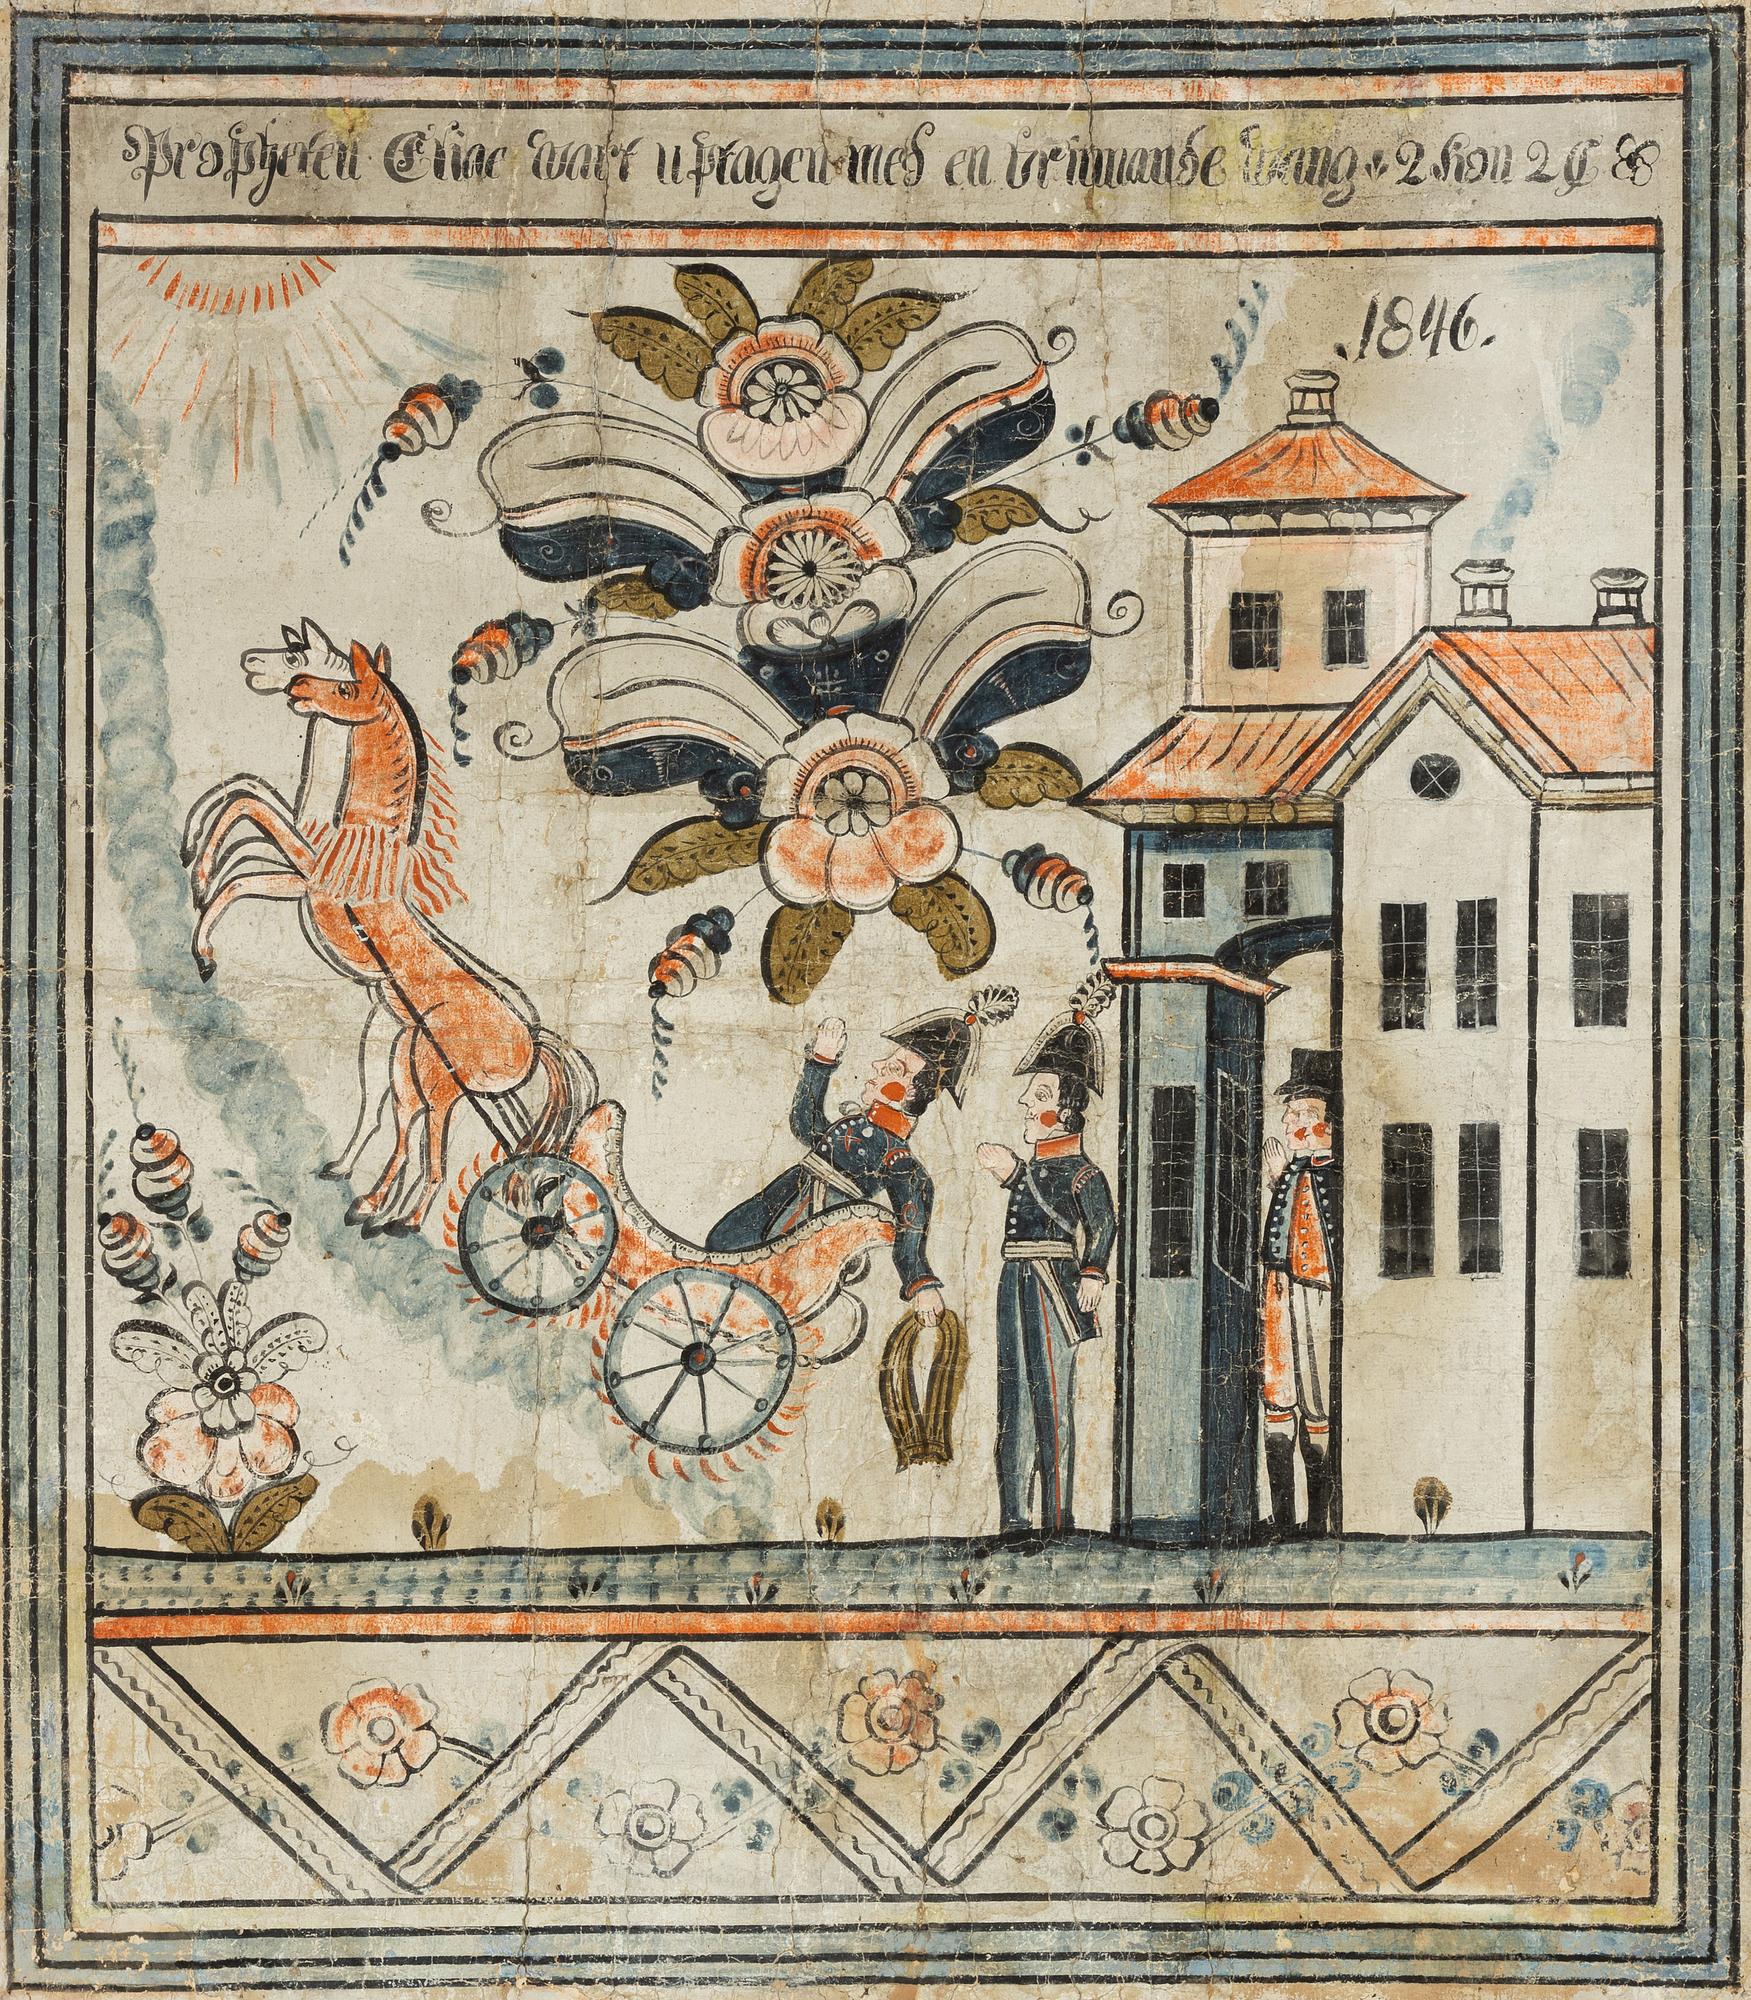 Propheten Eliae wart uptagen med en brinnande wang 2 Kon 2 C
1846.